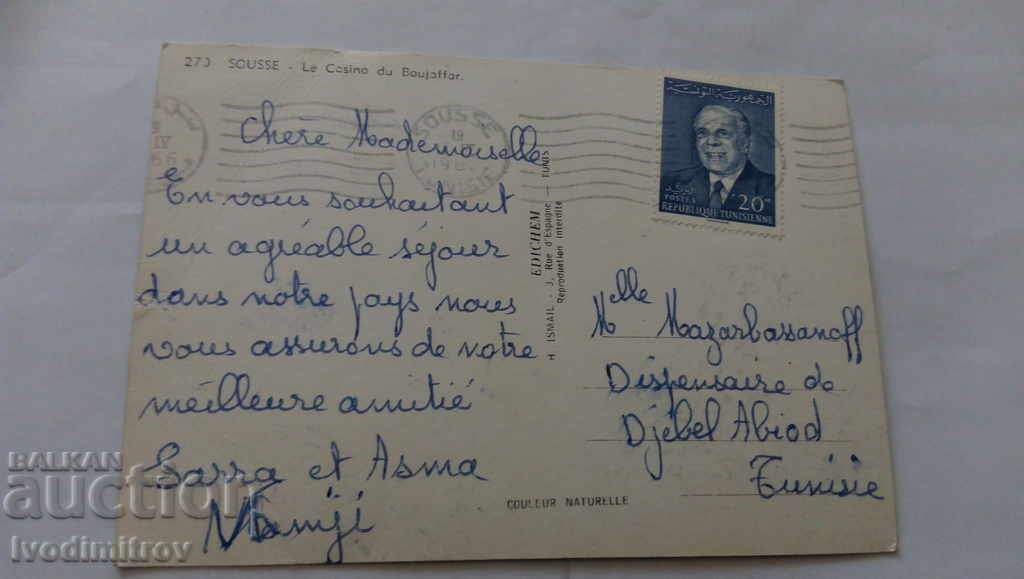 273 SOUSSE - Le Casino du Boujaffar.
Chère Mademoiselle
En vous souhaitant
un agréable séjour
dans notre pays nous
vous assurons de notre
meilleure amitié
Sarra et Asma
EDICHEM
H ISMAIL - 3, Rue d'Espagne — TUNIS
Reproduction interdite
SOUSSE
19
TUNISIE
IV
66
الجمهورية التونسية
البريد
20
POSTES
REPUBLIQUE TUNISIENNE
Mlle Mazarbassanoff
Dispensaire de
Djebel Abiod
Tunisie
COULEUR NATURELLE
BALKAN
auction
Ivodimitrov